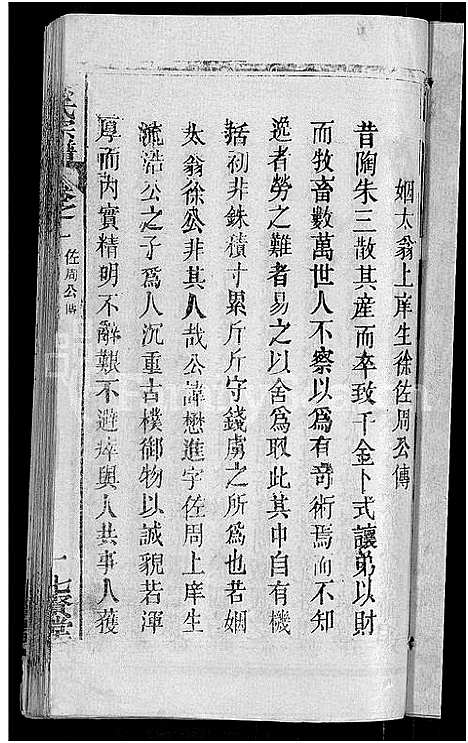 姻太翁上庠生徐佐周公傳
昔陶朱三散其産而卒致千金卜式讓弟以財
而牧畜數萬世人不察以為有竒術焉而不知
逸者勞之難者易之以舍為取此其中自有機
括初非銖積寸累斤斤守錢虜之所為也若姻
太翁徐公非其人哉公諱懋進字佐周上庠生
浩公之子爲人沉重古樸御物以誠貌若渾
厚而内實精明不辭艱不避瘁與人共事人獲
氏宗譜
卷之
佐周公傳
一
堂